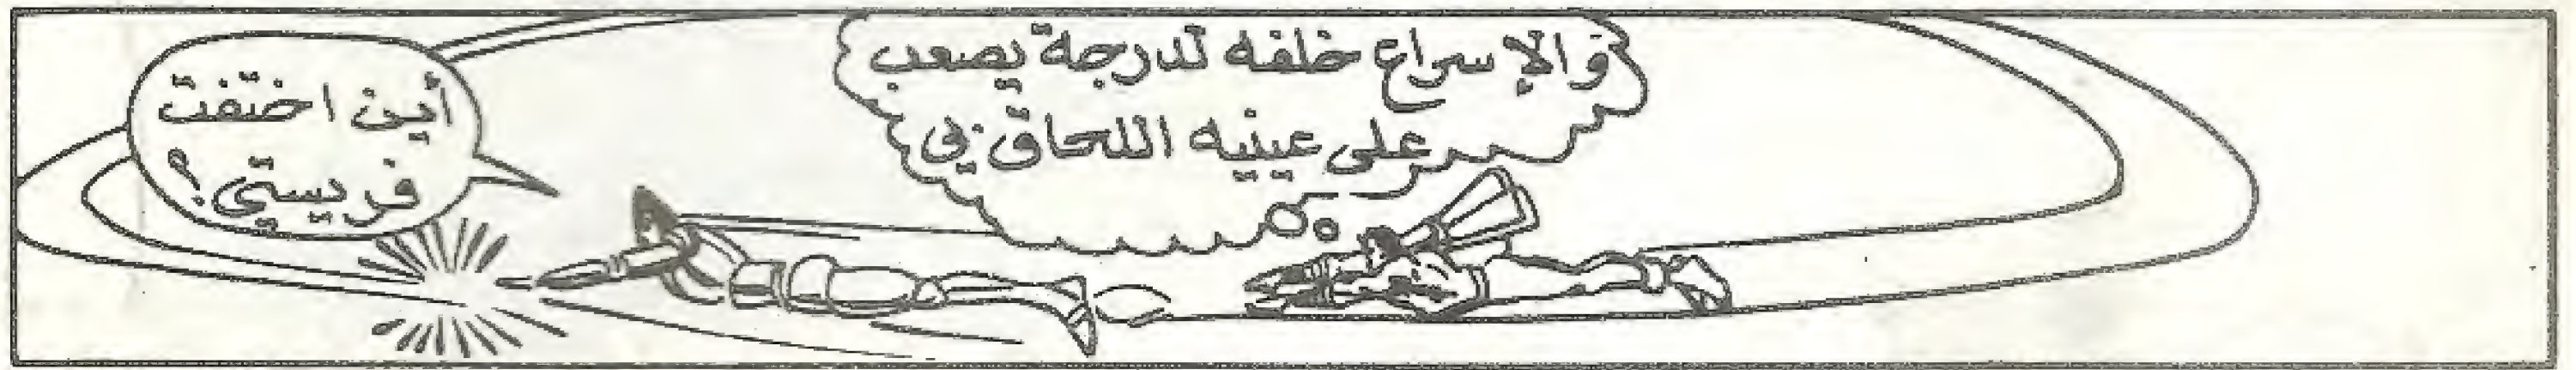 والإسراع خلفه لدرجة يصعب
على عينيه اللحاق بي
أين اختفت
فريستي؟